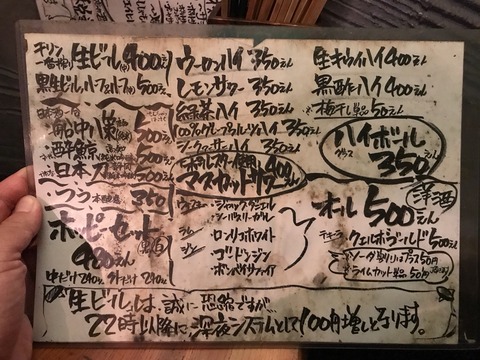 キリン一番搾り 生ビール(中) 400えん
黒生ビール、ハーフ&ハーフ(中) 500えん
船中八策 500えん
酔鯨 500えん
日本人 500えん
350
ホッピーセット
480えん
中だけ240えん 外だけ240えん
ウーロンハイ 350えん
レモンサワー 350えん
緑茶ハイ 350えん
100%グレープフルーツハイ 350えん
シークァーサーハイ 350えん
マスカットサワー 400えん
生キウイハイ 400えん
黒酢ハイ 400えん
梅干し単品 50えん
ハイボール
グラス 350えん
ウィスキー ジャックダニエル
シーバスリーガル
ラム ロンリコホワイト
ジン ゴードンジン
ボンベイサファイア
洋酒
オール 500えん
テキーラ クエルボゴールド 500えん
ソーダ割りはプラス50円
ライムカット単品 50円
生ビールは、誠に恐縮ですが…
22時以降に深夜システムとして100円増しとなります。